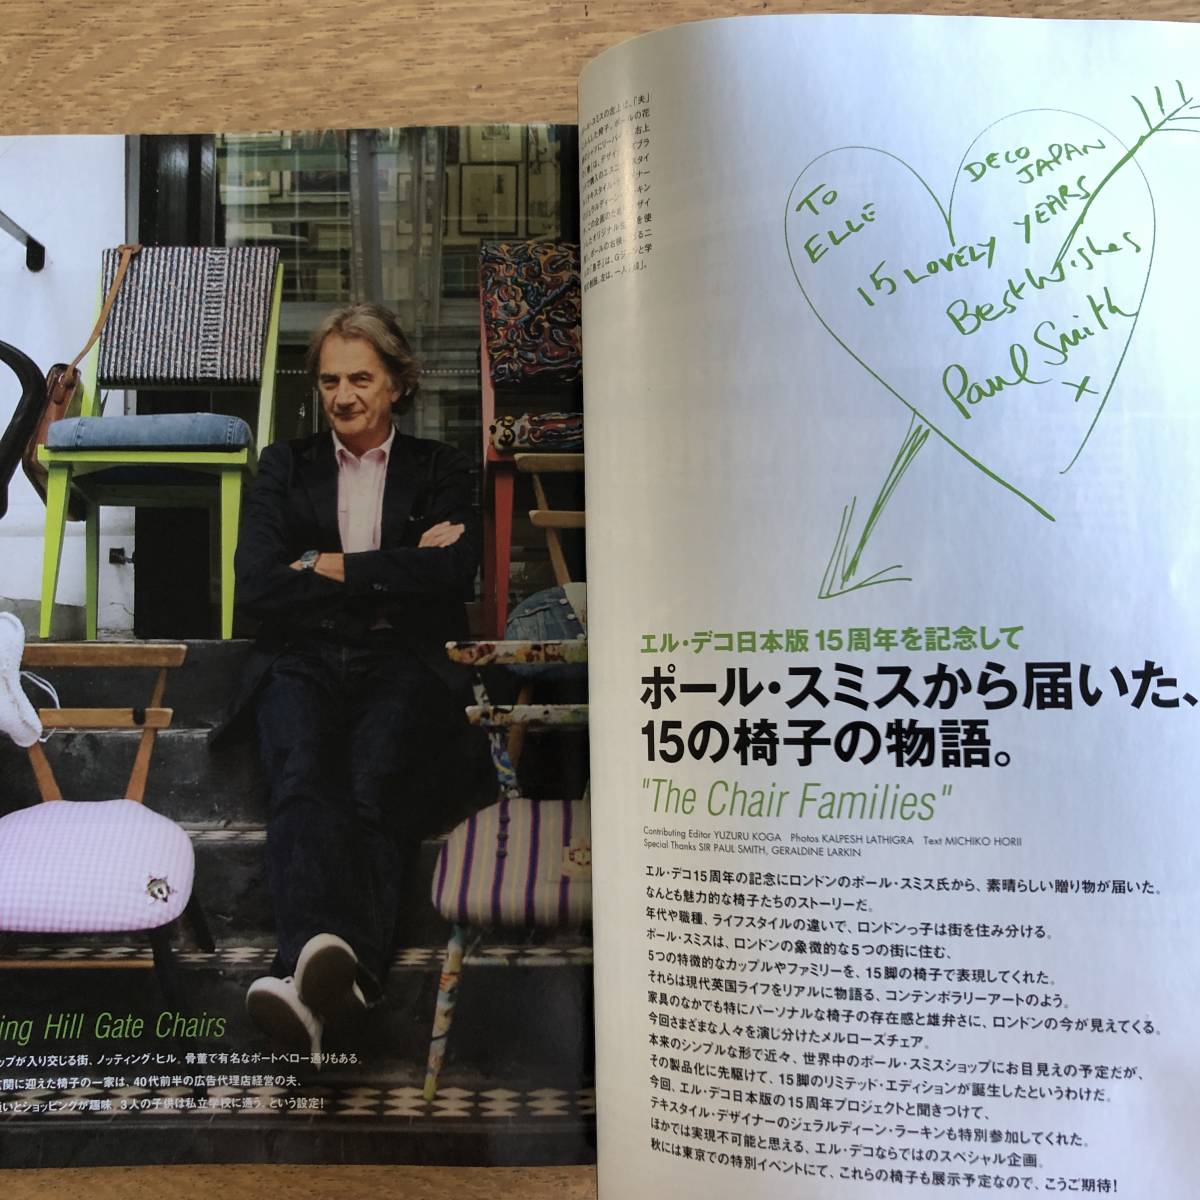 ing Hill Gate Chairs
ップが入り交じる街、ノッティング・ヒル。骨董で有名なポートベロー通りもある。
関に迎えた椅子の一家は、40代前半の広告代理店経営の夫、
いとショッピングが趣味。3人の子供は私立学校に通う、という設定!
TO
ELLE
DECO
JAPAN
15 LOVELY YEARS
Best Wishes
Paul Smith
x
エル・デコ日本版 15周年を記念して
ポール・スミスから届いた、
15の椅子の物語。
"The Chair Families"
Contributing Editor YUZURU KOGA Photos KALPESH LATHIGRA Text MICHIKO HORII
Special Thanks SIR PAUL SMITH, GERALDINE LARKIN
エル・デコ15周年の記念にロンドンのポール・スミス氏から、素晴らしい贈り物が届いた。
なんとも魅力的な椅子たちのストーリーだ。
年代や職種、ライフスタイルの違いで、ロンドンっ子は街を住み分ける。
ポール・スミスは、ロンドンの象徴的な5つの街に住む、
5つの特徴的なカップルやファミリーを、15脚の椅子で表現してくれた。
それらは現代英国ライフをリアルに物語る、コンテンポラリーアートのよう。
家具のなかでも特にパーソナルな椅子の存在感と雄弁さに、ロンドンの今が見えてくる。
今回さまざまな人々を演じ分けたメルローズチェア。
本来のシンプルな形で近々、世界中のポール・スミスショップにお目見えの予定だが、
その製品化に先駆けて、15脚のリミテッド・エディションが誕生したというわけだ。
今回、エル・デコ日本版の15周年プロジェクトと聞きつけて、
テキスタイル・デザイナーのジェラルディーン・ラーキンも特別参加してくれた。
ほかでは実現不可能と思える、エル・デコならではのスペシャル企画。
秋には東京での特別イベントにて、これらの椅子も展示予定なので、こうご期待!